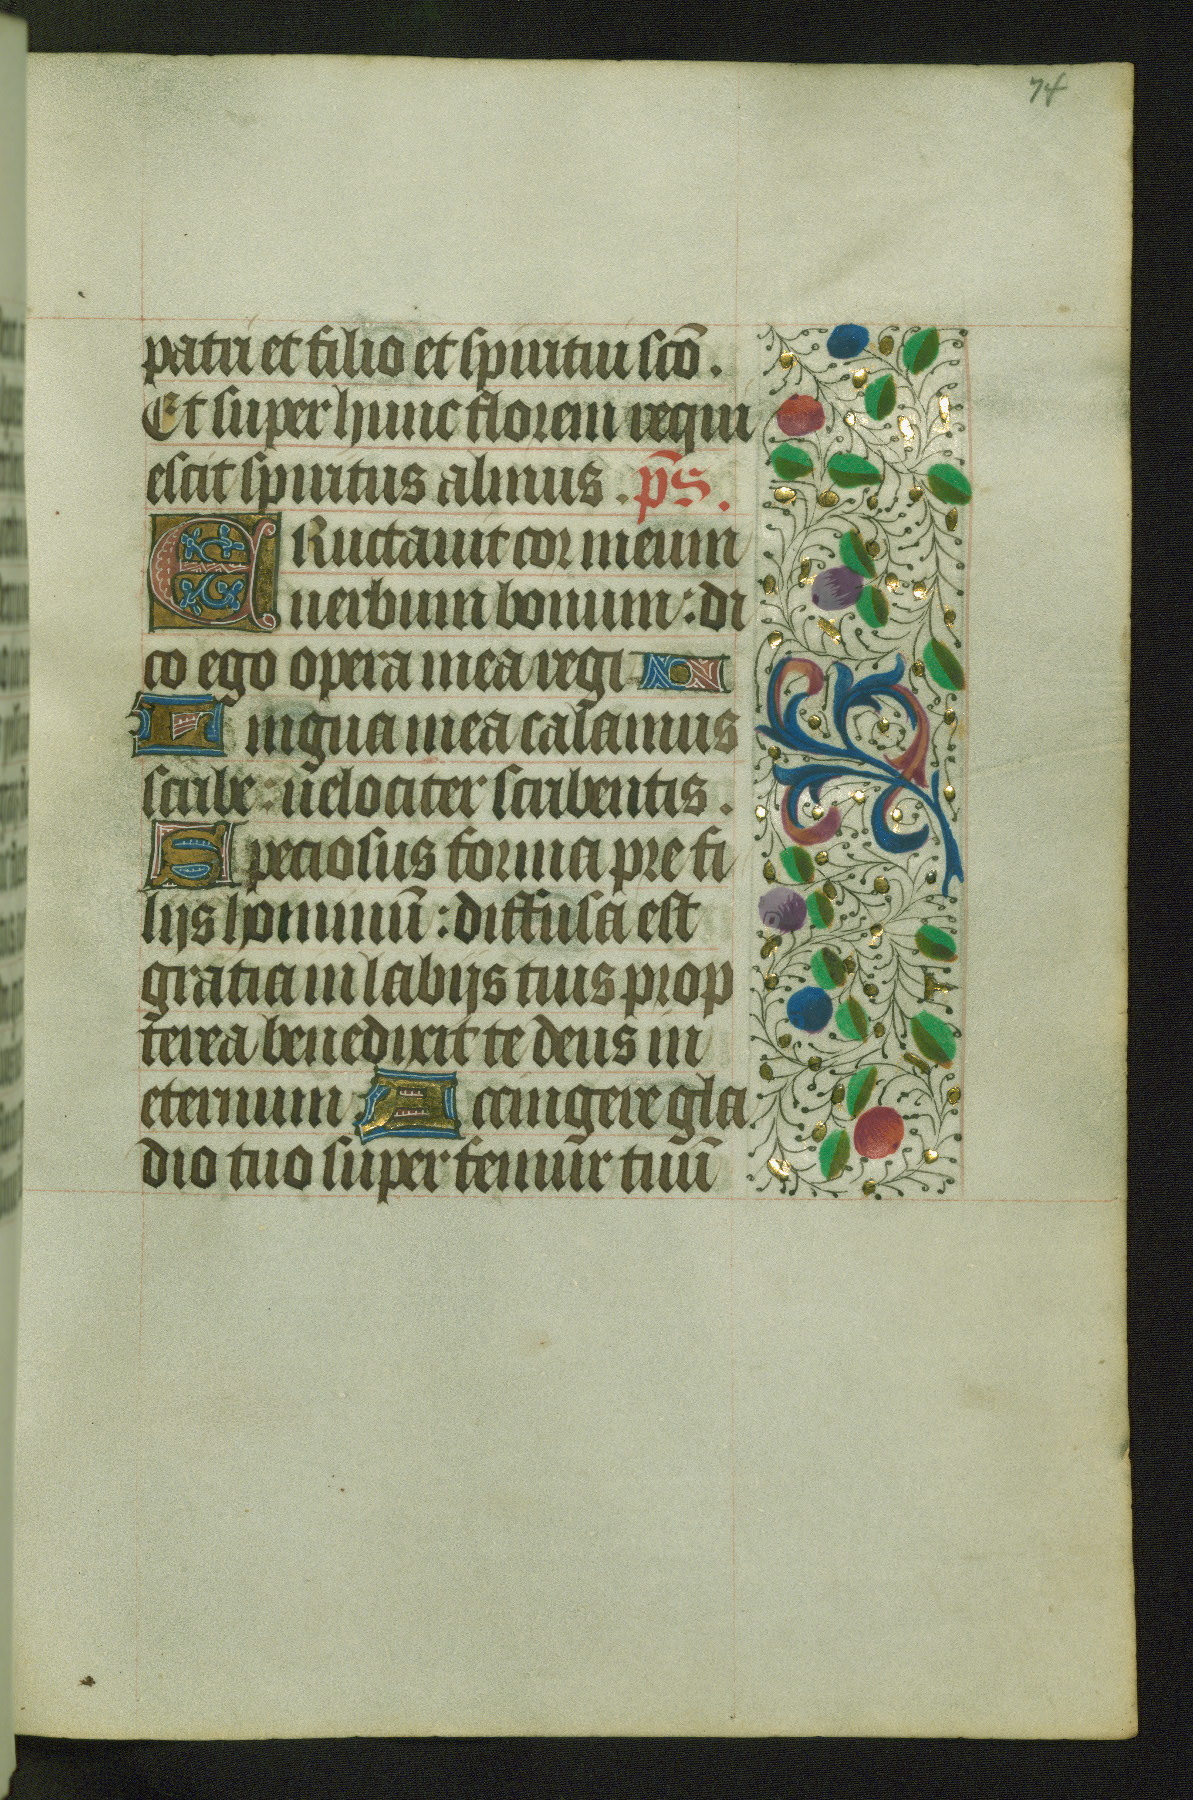 74
patri et filio et spiritui sc̄o.
Et super hunc florem requi
escit spiritus almus. p̄s.
ERuctauit cor meum
uerbum bonum: di
co ego opera mea regi
Lingua mea calamus
scribe: uelociter scribentis.
Speciosus forma pre fi
lijs hominū: diffusa est
gratia in labijs tuis prop
terea benedixit te deus in
eternum Accingere gla
dio tuo super femur tuū